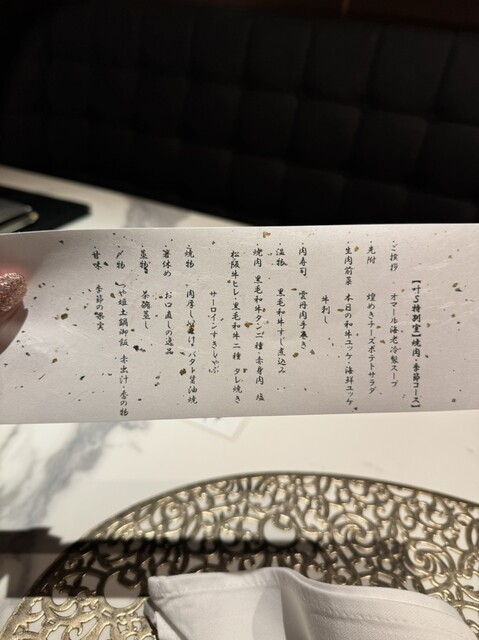 【十S特別室】焼肉・季節コース】
・ご挨拶 オマール海老冷製スープ
・先附 煌めきチーズポテトサラダ
・生肉前菜 本日の和牛ユッケ・海鮮ユッケ
牛刺し
・肉寿司 雲丹肉手巻き
・温物 黒毛和牛すじ煮込み
・焼肉 黒毛和牛タン二種・赤身肉 塩
松阪牛ヒレ・黒毛和牛二種 タレ焼き
サーロインすきしゃぶ
・焼物 肉厚し バタト醤油焼
・箸休め お口直しの逸品
・蒸物 茶碗蒸し
・〆物 土鍋御飯 赤出汁・香の物
・甘味 季節の果実